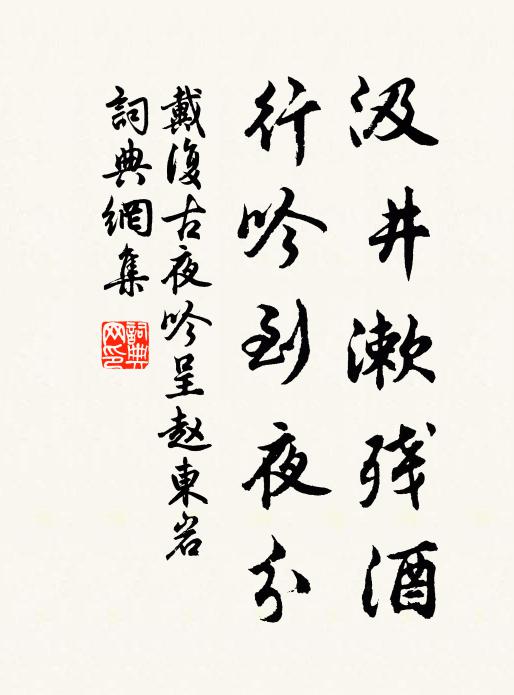 汲井漱残酒
行吟到夜分
戴復古夜吟呈赵東岩
詞典網集
詞典网印